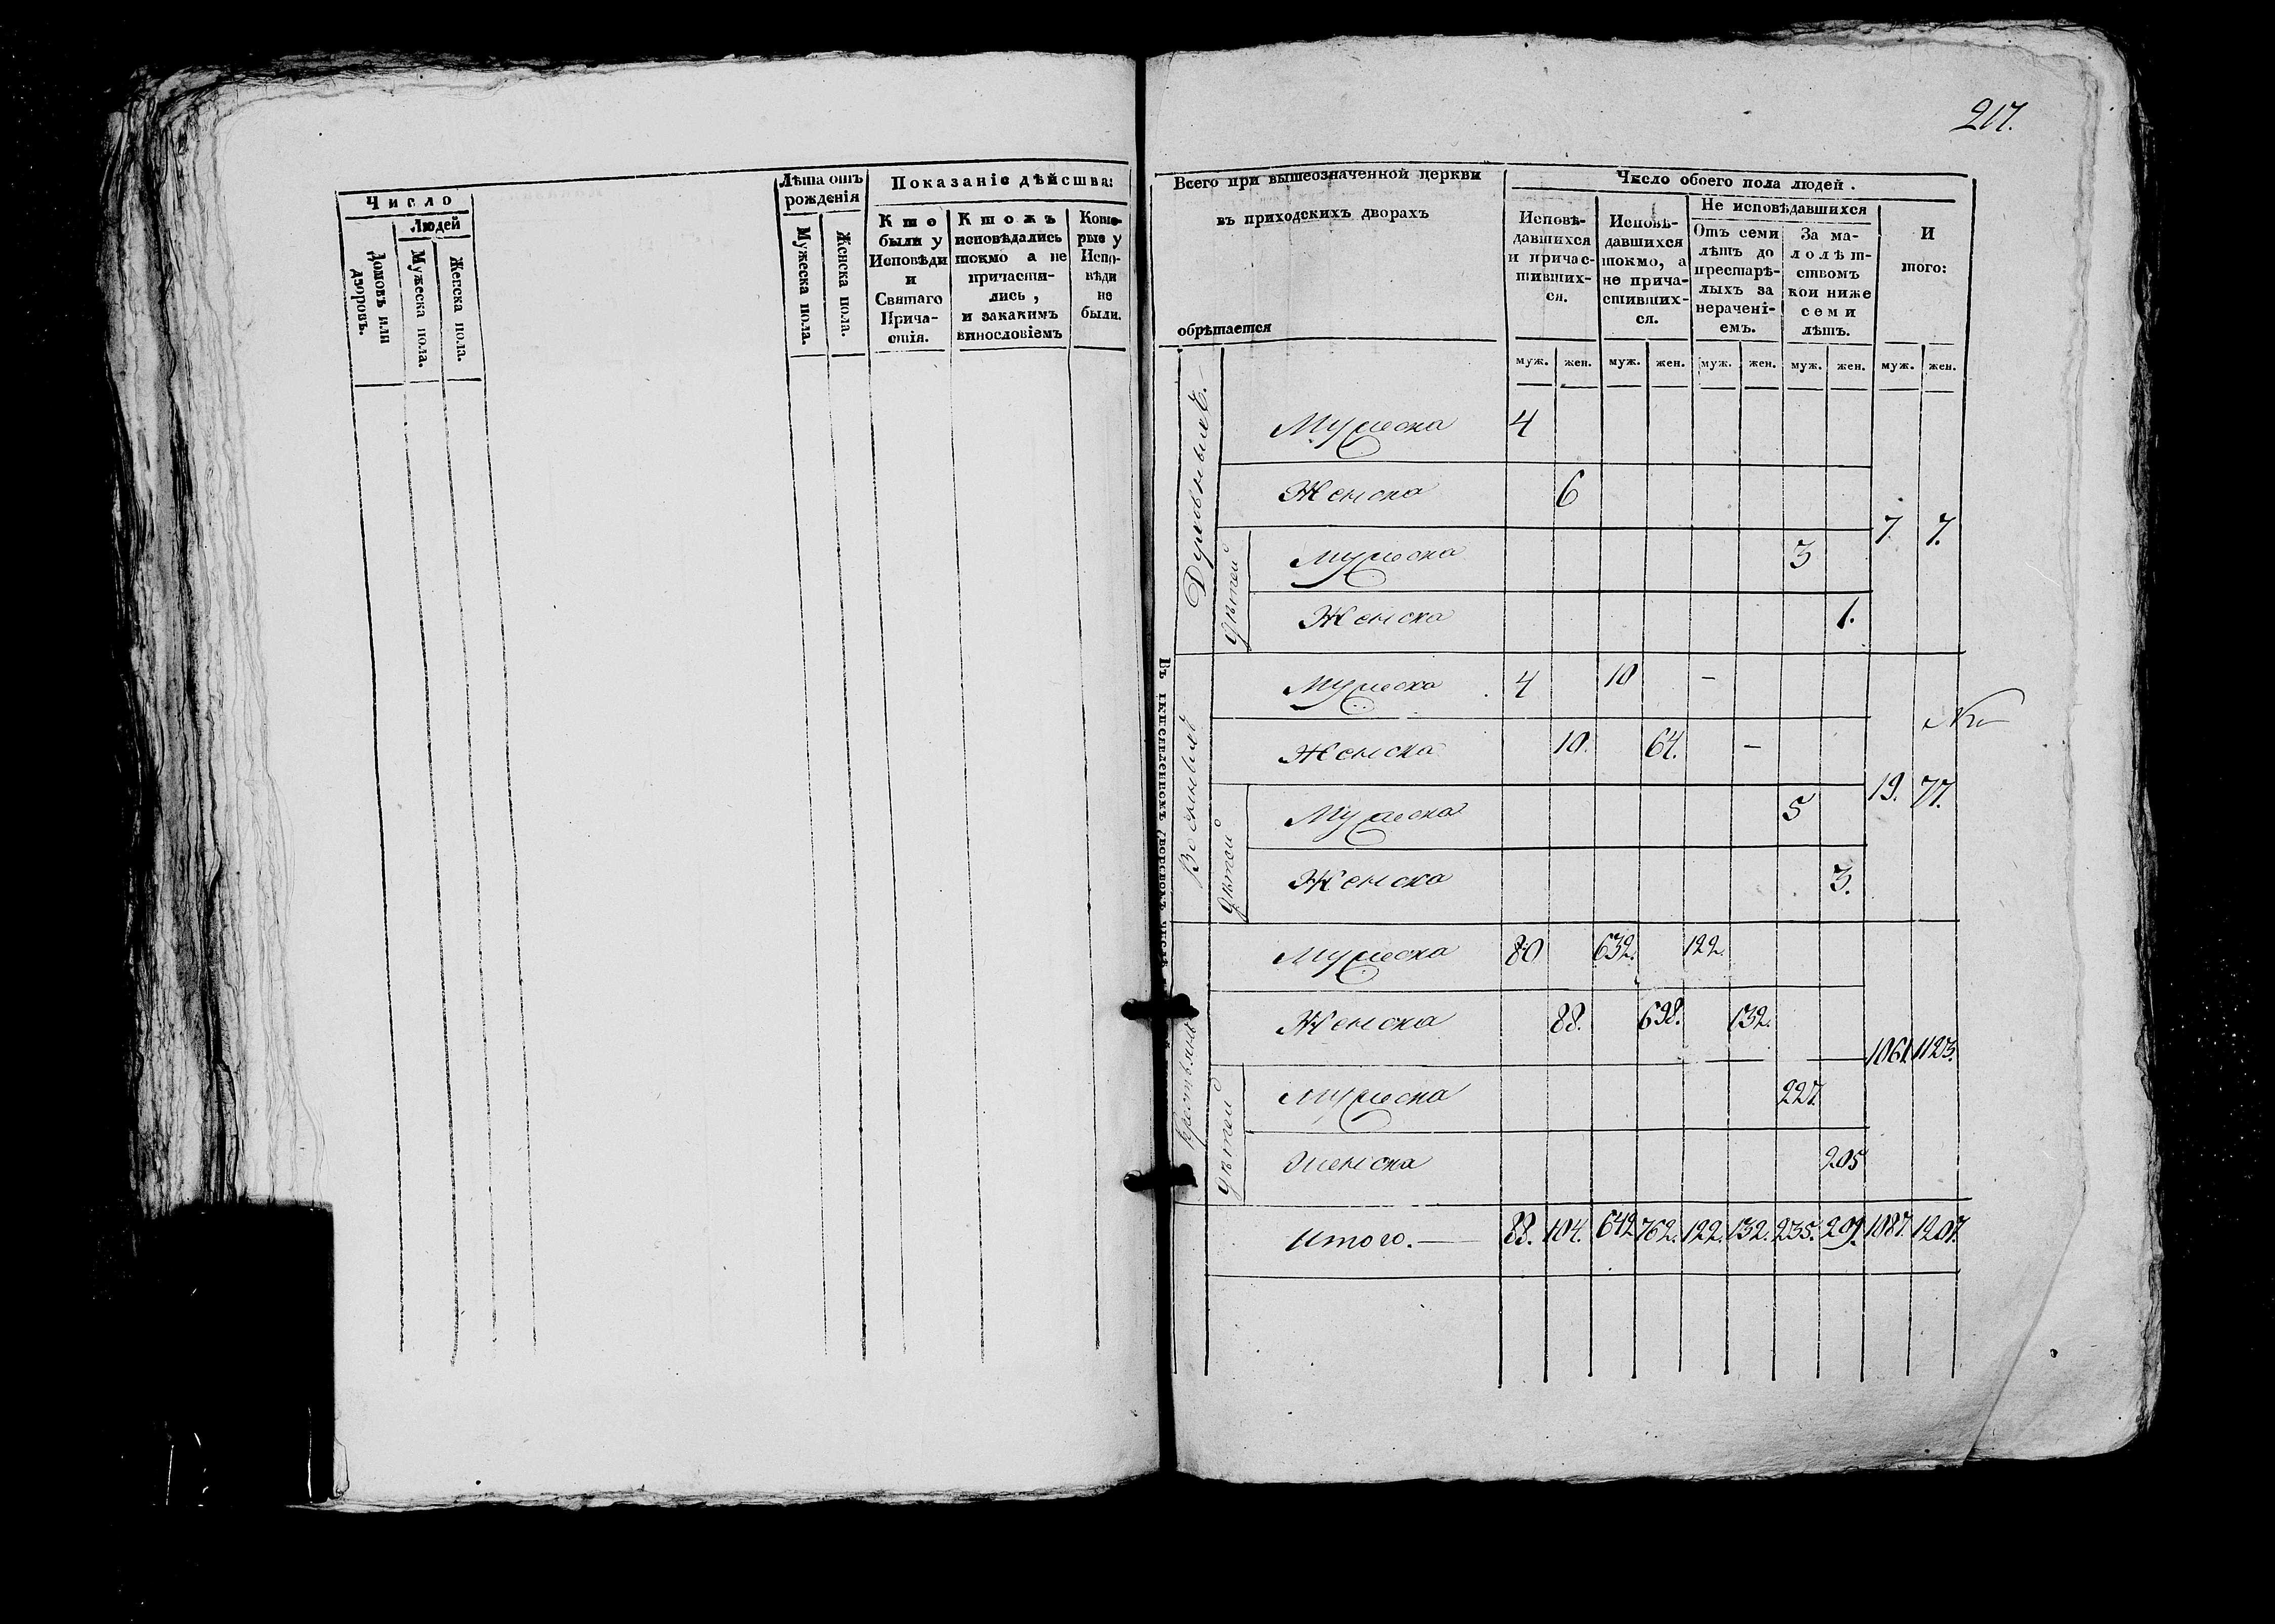 217.
Число
Людей
Домовъ или дворовъ.
Мужеска пола.
Женска пола.
Лѣта отъ
рожденія
Мужеска пола.
Женска пола.
Показаніе дѣйства:
Кто
были у
Исповѣди
и
Святаго
Прича-
стія.
Ктожъ
исповѣдались
токмо а не
причасти-
лись,
и закакимъ
винословіемъ
Кото-
рые у
Испо-
вѣди
не
были.
Всего при вышеозначенной церкви
въ приходскихъ дворахъ
обрѣтается
Число обоего пола людей.
Исповѣ-
давшихся
и причас-
тивших-
ся.
Исповѣ-
давшихся
токмо, а
не прича-
стивших-
ся.
Не исповѣдавшихся
Отъ семи
лѣтъ до
престарѣ-
лыхъ за
нерачені-
емъ.
За ма-
лолѣт-
ствомъ
кои ниже
семи
лѣтъ.
И
того:
муж. жен. муж. жен. муж. жен. муж. жен. муж. жен.
Духовныхъ.
Мужеска 4
Женска 6
дѣтей
Мужеска 3
7. 7.
Женска 1.
Военныхъ
Мужеска 4 10 –
Женска 10. 64. –
дѣтей
Мужеска 5
19. 77.
Женска 3.
Мужеска 80 632. 122.
Женска 88. 698. 132.
1061. 1123.
дѣтей
Мужеска 227.
Женска 205
Итого. — 88. 104. 642 762. 122. 132. 235. 209. 1087. 1207.